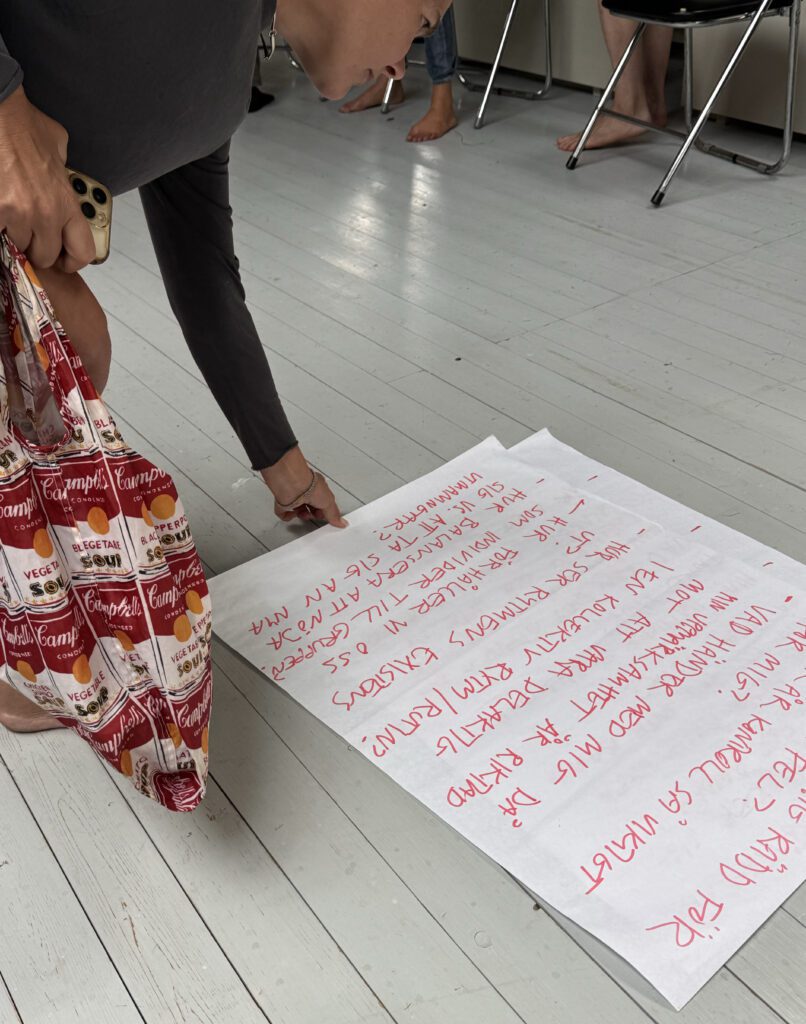 RÄDD FÖR
FEL?
ÄR KONTROLL SÅ VIKTIGT
MIG?
VAD HÄNDER MED MIG DÅ
MIN UPPMÄRKSAMHET ÄR RIKTAD
MOT ATT VARA DELAKTIG
I EN KOLLEKTIV RYTM/RUTIN?
HUR SER RYTMENS EXISTENS
UT?
HUR FÖRHÅLLER VI OSS
SOM INDIVIDER TILL GRUPPEN?
HUR BALANSERA ATT NÖJA
SIG VS. ATT TA SIG AN NYA
UTMANINGAR?
Campbell's
CONDENSED
VEGETABLE
SOUP